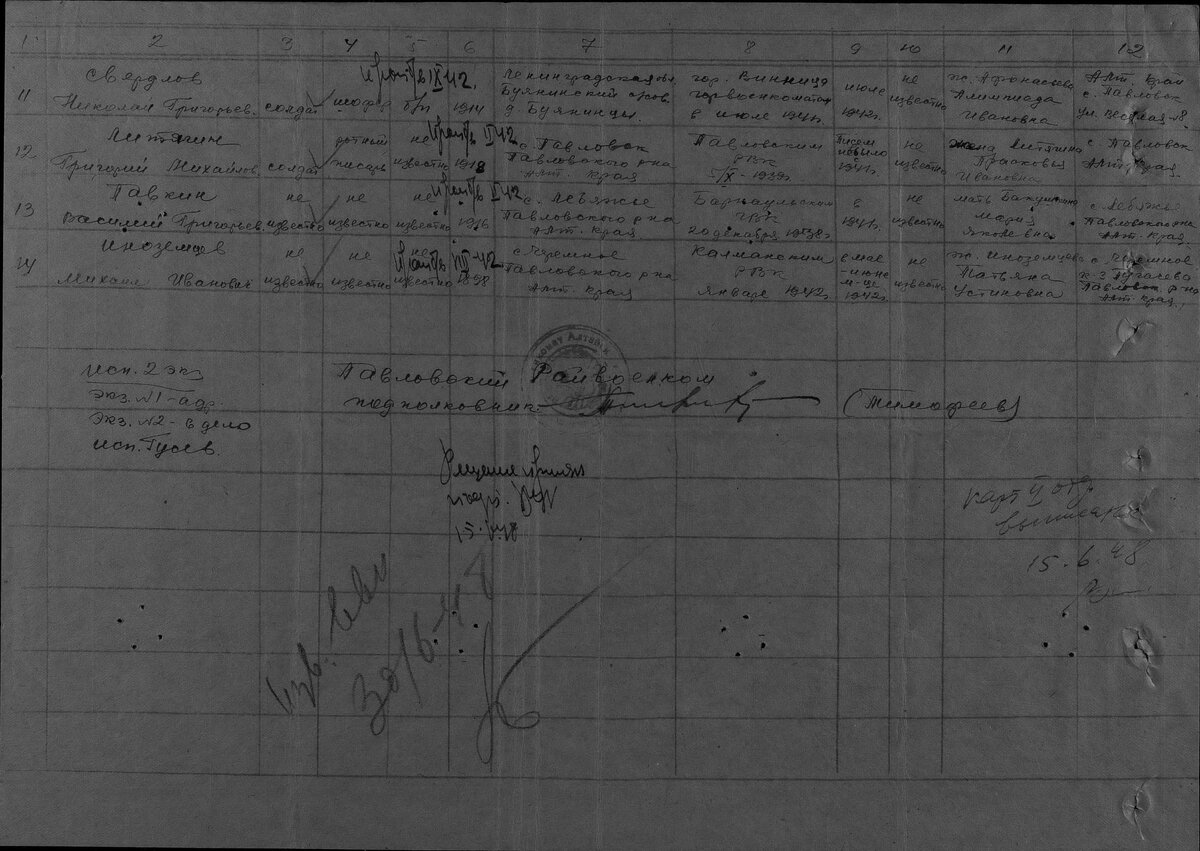 1 2 3 4 5 6 7 8 9 10 11 12
11
Свердлов
Николай Григорьев.
солдат
шофер
б/п
1914
Ленинградская
Буянинский
д. Буянинцы
гор. Винница
горвоенкоматом
в июле 1941г.
июле
1942г.
не
известно
ж. Афонасьева
Алимпиада
Ивановна
Алт. край
с. Павловск
12
Литягин
Григорий Михайлов.
солдат
ротный
писарь
не
известно
1918
с. Павловск
Павловского р-на
Алт. край
Павловским
РВК
5/X-1939г.
Писем
не было
1941г.
не
известно
жена Литягина
Прасковья
Ивановна
с. Павловск
Алт. края.
13
Павкин
Василий Григорьев.
не
известно
не
известно
не
известно
1916
с. Лебяжье
Павловского р-на
Алт. край
Барнаульским
РВК
20 декабря 1938г.
в
1941г.
не
известно
мать
Мария
Яковлевна
с. Лебяжье
Павловского р-на
Алт. край.
14
Иноземцев
Михаил Иванович
не
известно
не
известно
не
известно
1898
с. Черемное
Павловского р-на
Алт. край
Калманским
РВК
январе 1942г.
в мае
-июне
м-це
1942г.
не
известно
ж. Иноземцева
Татьяна
Устиновна
с. Черемное
к-з Пугачева
Павловск. р-на
Алт. край.
исп. 2 экз
экз. №1-адр.
экз. №2-в дело
исп. Гусев.
Павловский Райвоенком
подполковник
(Тимофеев)
15.
карт
15.6.48
изв.
30/6-48